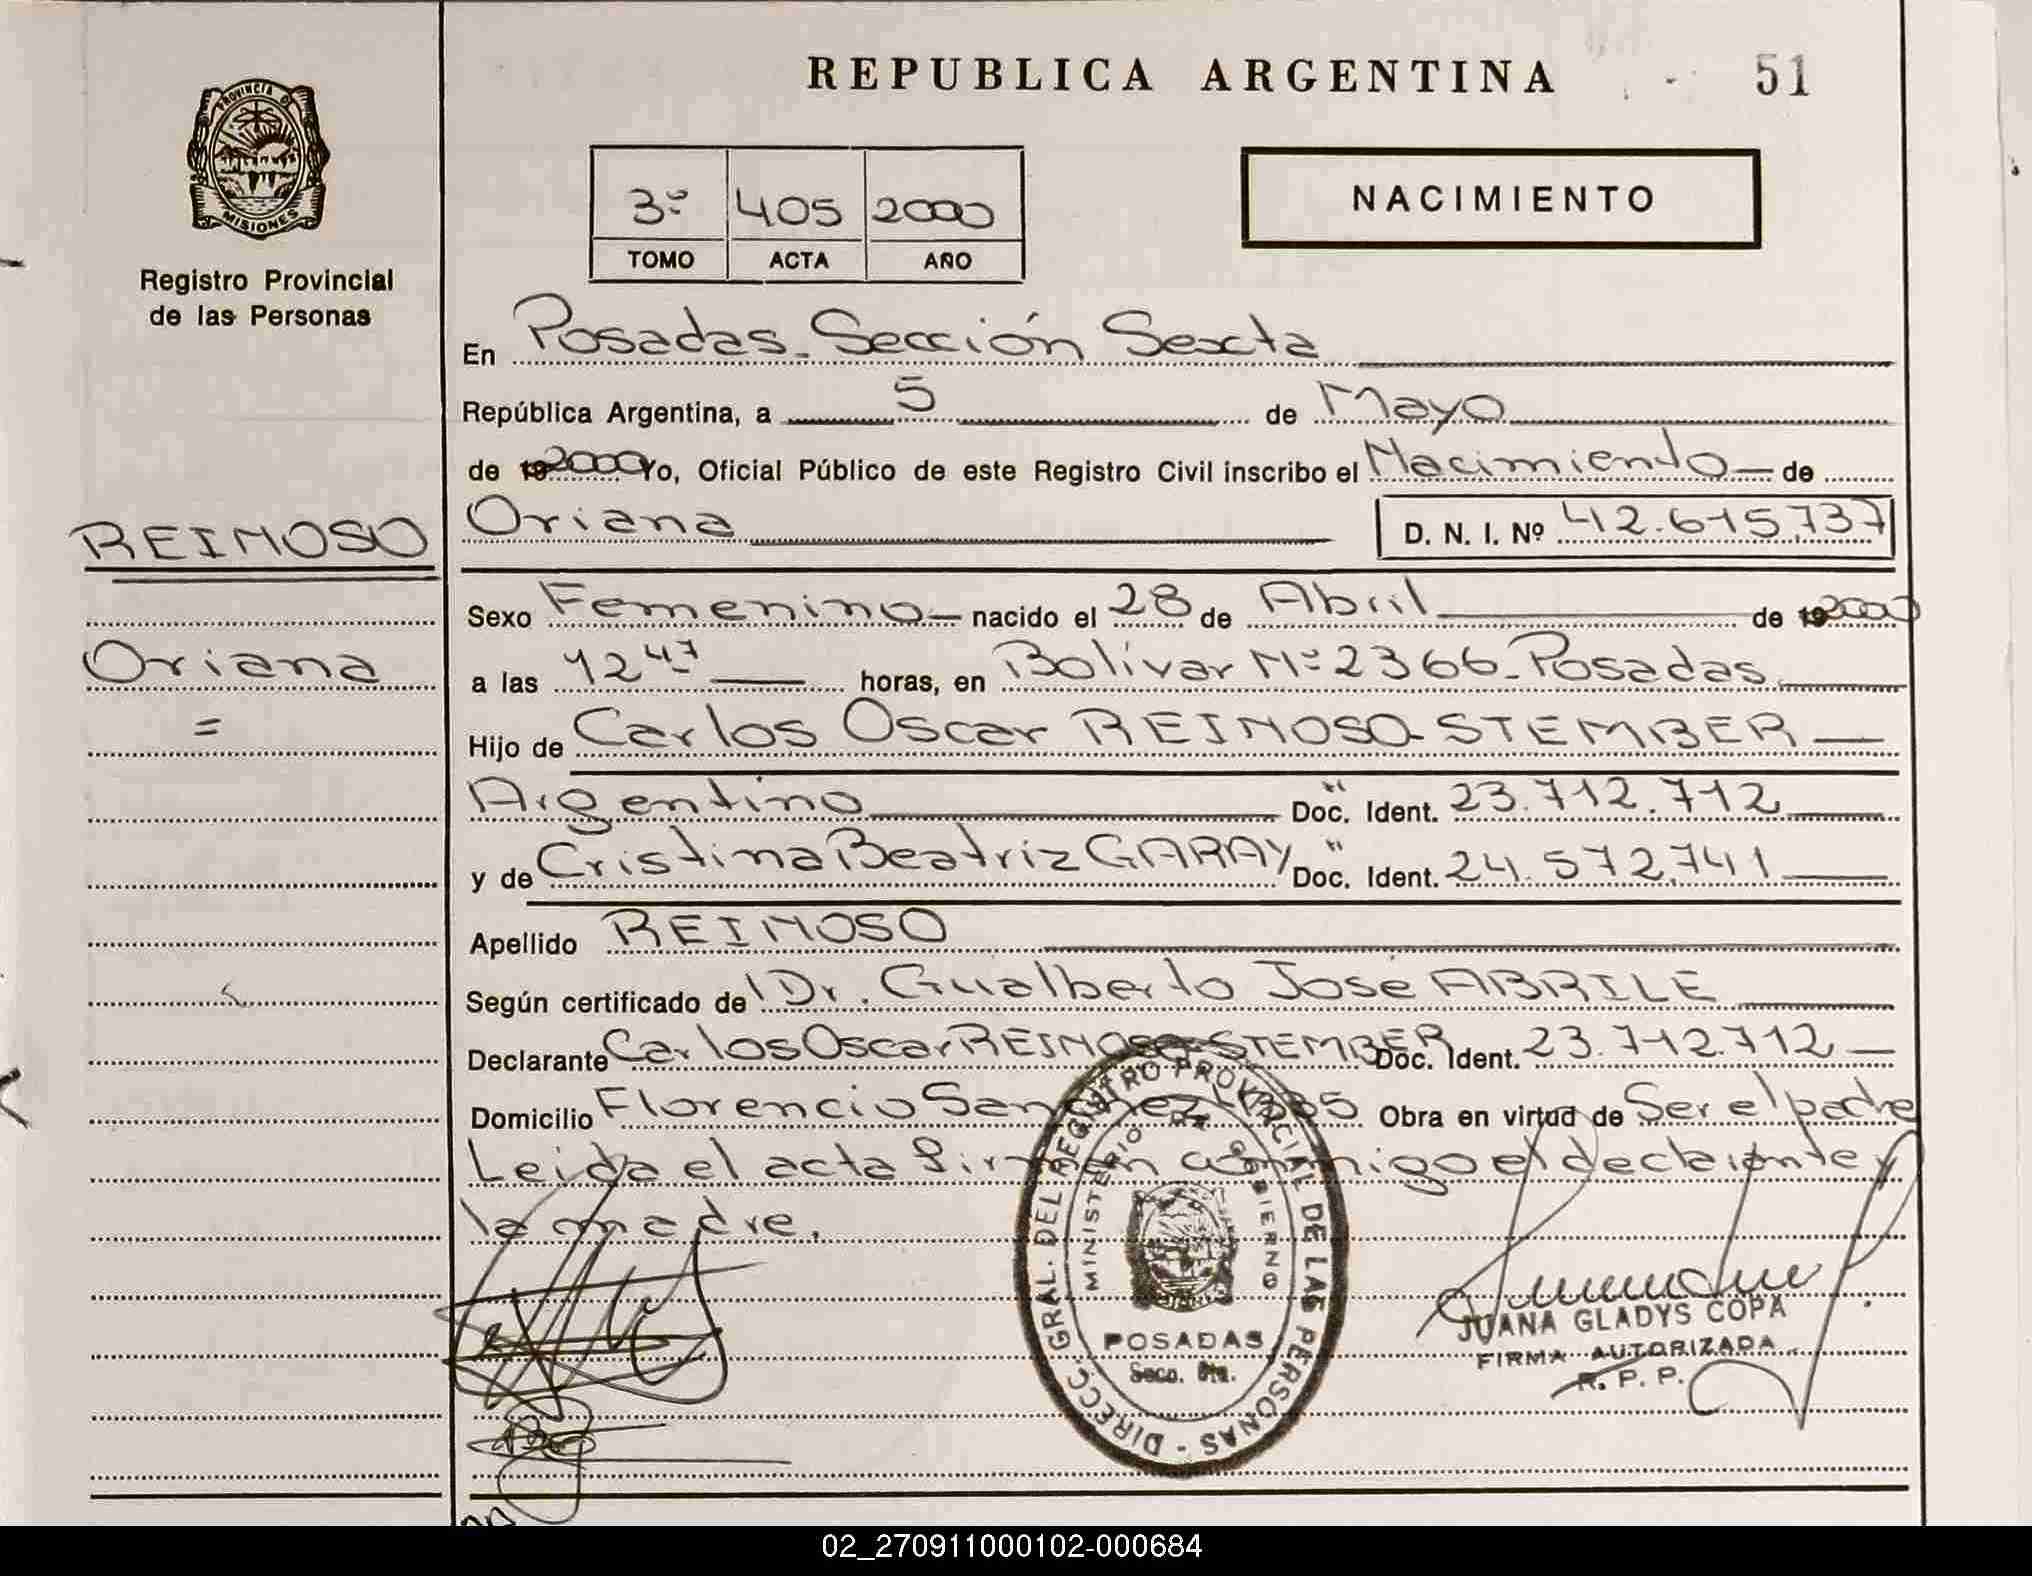 REPUBLICA ARGENTINA
51
PROVINCIA DE
MISIONES
Registro Provincial
de las Personas
3º 405 2000
TOMO ACTA AÑO
NACIMIENTO
En Posadas - Sección Sexta
República Argentina, a 5 de Mayo
de 19 2000 Yo, Oficial Público de este Registro Civil inscribo el Nacimiento de
REIMOSO
Oriana
D. N. I. Nº 42.615.737
Sexo Femenino nacido el 28 de Abril de 19 2000
Oriana
=
a las 12 47 horas, en Bolívar Nº 2366 - Posadas
Hijo de Carlos Oscar REIMOSO STEMBER
Argentino Doc. Ident. 23.712.712
y de Cristina Beatriz GARAY Doc. Ident. 24.572.741
Apellido REIMOSO
Según certificado de Dr. Gualberto José ABRILE
Declarante Carlos Oscar REIMOSO STEMBER Doc. Ident. 23.712.712
Domicilio Florencio Sanchez Obra en virtud de Ser el padre
Leida el acta firman conmigo el declarante y
la madre.
DIRECC. GRAL. DEL REGISTRO PROVINCIAL DE LAS PERSONAS -
MINISTERIO DE GOBIERNO
POSADAS
Secc. 6ta.
JUANA GLADYS COPA
FIRMA AUTORIZADA
R. P. P.
02_270911000102-000684